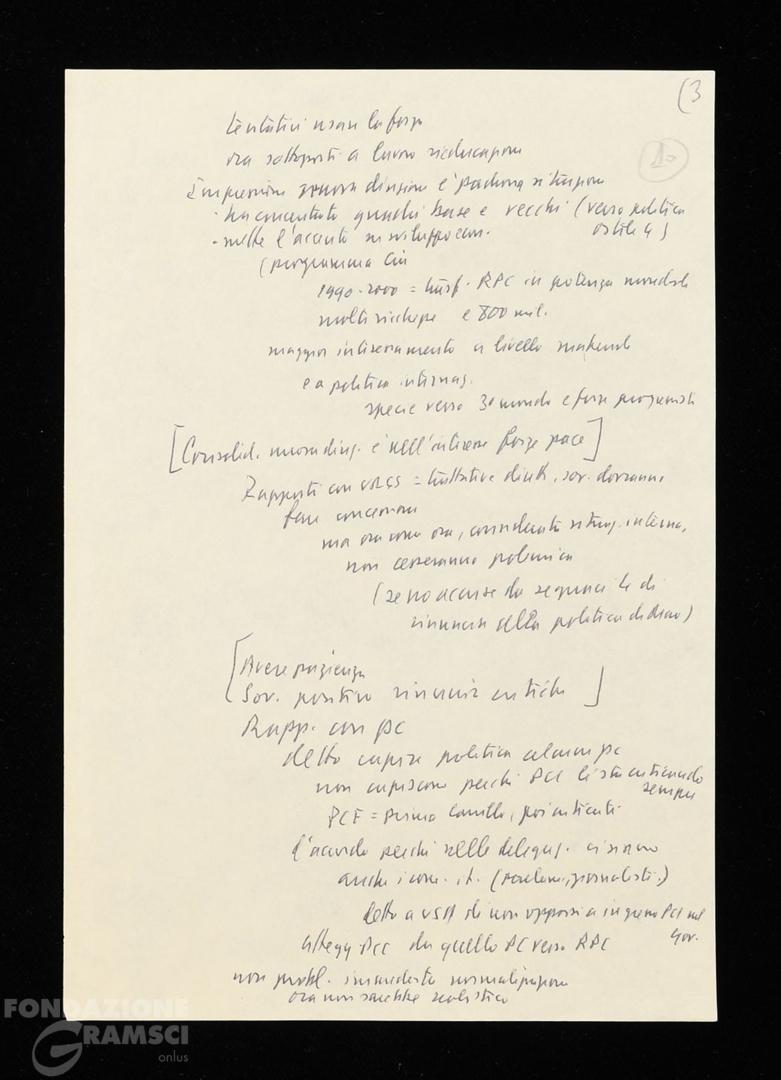 (3
10
tentativi usare la forza
ora sottoposti a lavoro rieducazione
Impressione nuova direzione è padrona situazione
· ha concentrato quadri base e vecchi (verso politica
ostile 4)
· mette l'accento su sviluppo econ.
(programma Cin
1990-2000 = trasf. RPC in potenza mondiale
molte ricchezze e 800 mil.
maggior interessamento a livello
e a politica internaz.
specie verso 3° mondo e forze progressiste
[Consolid. nuova dirig. è nell'interesse forze pace]
Rapporti con URSS = trattative dirette, sov. dovranno
fare concessioni
ma ora come ora, considerata situaz. interna,
non cesseranno polemica
(se no accuse da seguaci 4 di
rinuncia alla politica di Mao)
[Avere pazienza
Sov. positivo rinuncia critiche]
Rapp. con PC
detto capire politica alcuni PC
non capiscono perché PCI li sta criticando
sempre
PCF = prima, poi criticati
D'accordo perché nelle delegaz. ci siano
anche i com. it. (giornalisti.)
detto a USA di non opporsi a ingresso PCI nel
gov.
atteg. PCC da quello PC verso RPC
non probl. immediato normalizzazione
ora non sarebbe realistico
FONDAZIONE
GRAMSCI
onlus